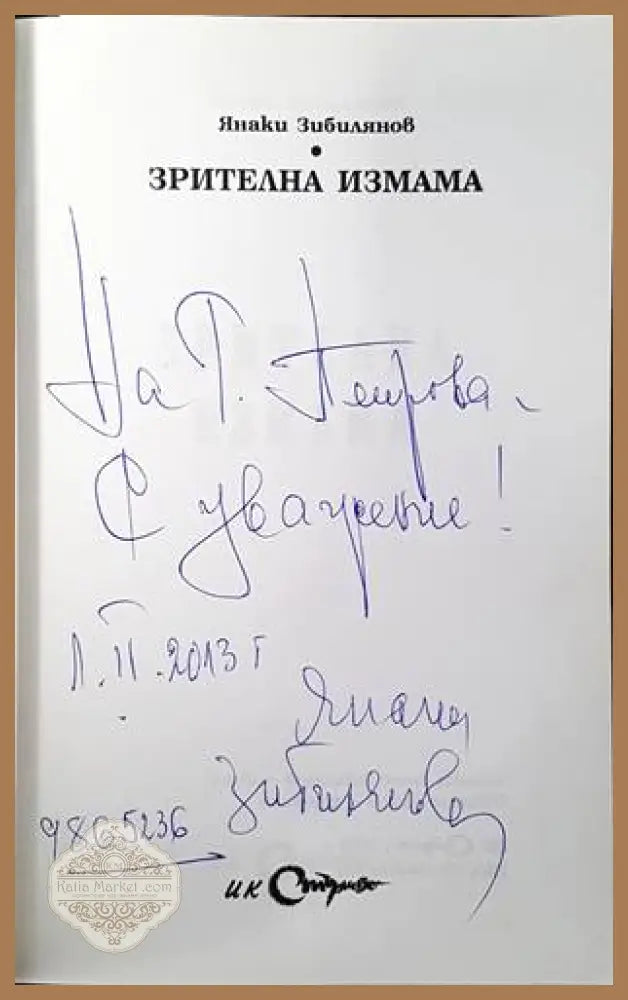 Янаки Зибилянов
•
ЗРИТЕЛНА ИЗМАМА
На Т. Петрова -
С уважение!
1.II.2013 г
Янаки
Зибилянов
9865236
ик
Katia Market .com